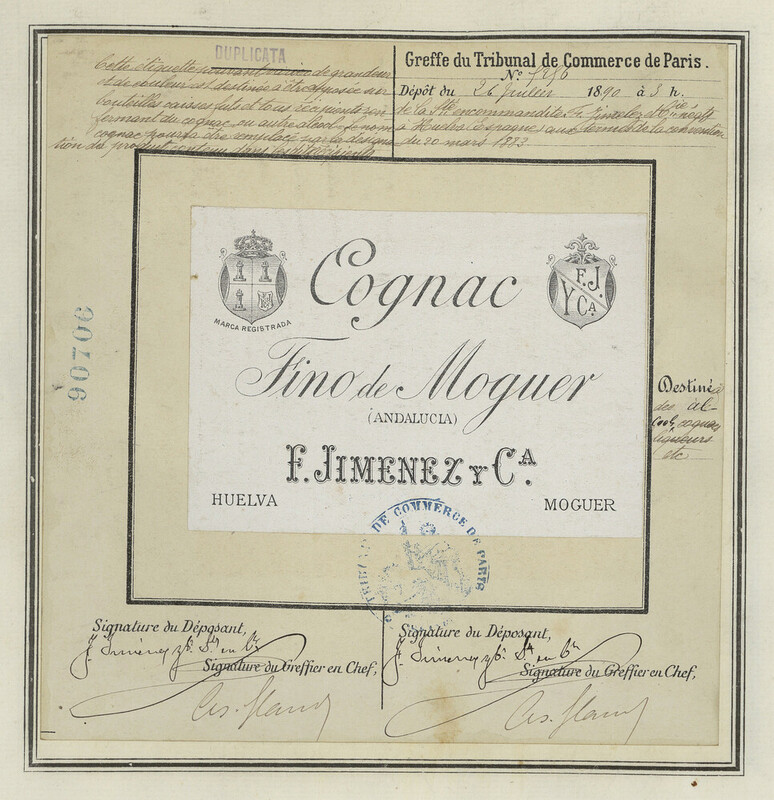 DUPLICATA
Cette étiquette pouvant varier de grandeur
et de couleur est destinée à être apposée sur
bouteilles caisses fûts et tous récipients ren
fermant du cognac ou autre alcool. Le nom
cognac pourra être remplacé par la désigna
tion du produit contenu dans les récipients
Greffe du Tribunal de Commerce de Paris.
No
Dépôt du 26 Juillet 1890 à 3 h.
de la Sté en commandite F. Jimenez et Cie négts
à Huelva (Espagne) aux termes de la convention
du 20 mars 1883
90706
MARCA REGISTRADA
F.J.
Y CA
Cognac
Fino de Moguer
(ANDALUCIA)
F. JIMENEZ Y CA.
HUELVA
MOGUER
Destiné à
des al-
cools, cognac
liqueurs
etc
TRIBUNAL DE COMMERCE DE PARIS
Signature du Déposant,
F. Jimenez
Signature du Greffier en Chef,
Signature du Déposant,
F. Jimenez
Signature du Greffier en Chef,